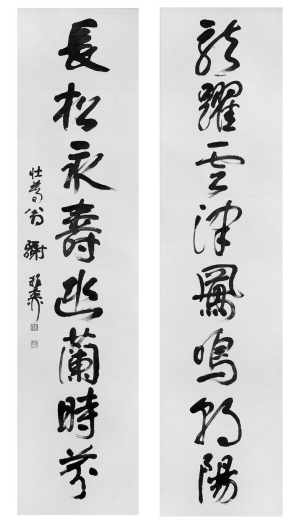 龍躍云津鳳鳴朝陽
長松永壽幽蘭時芬
壯暮翁謝稚柳